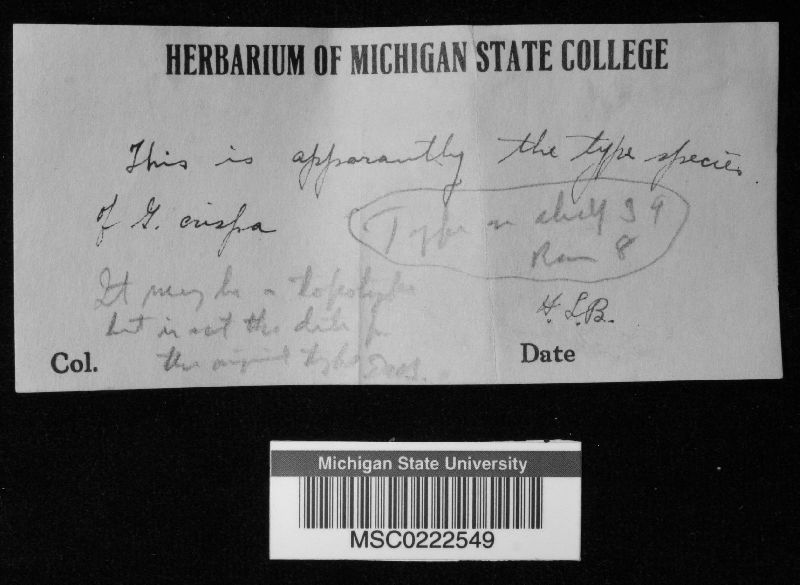 HERBARIUM OF MICHIGAN STATE COLLEGE
This is apparantly the type species
of G. crispa
Type on shelf 39
Row 8
It may be a topotype
but is not the
the original type
H. L. B.
Col.
Date
Michigan State University
MSC0222549